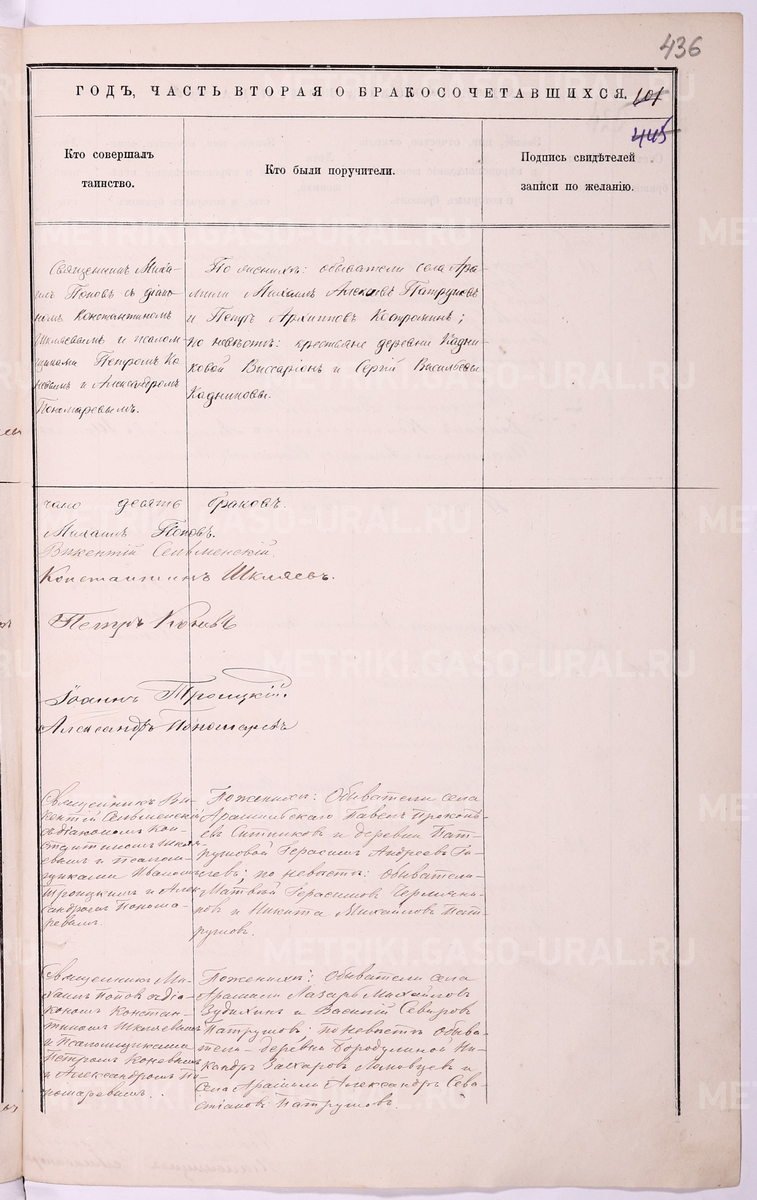 436
ГОДЪ, ЧАСТЬ ВТОРАЯ О БРАКОСОЧЕТАВШИХСЯ.
101
445
Кто совершалъ
таинство.
Кто были поручители.
Подпись свидѣтелей
записи по желанію.
Священникъ Миха-
илъ Поповъ съ діако-
номъ Константиномъ
Шкляевымъ и псалом-
щиками Петромъ Ко-
невымъ и Александромъ
Пономаревымъ.
По женихѣ: обыватели села Ара-
мили Михаилъ Алексѣевъ Патрушевъ
и Петръ Архиповъ Костромин;
по невѣстѣ: крестьяне деревни Кадни-
ковой Виссаріонъ и Сергій Васильевы
Кадниковы.
чано десять браковъ.
Михаилъ Поповъ.
Викентій Сельменскій.
Константинъ Шкляевъ.
Петръ Коневъ
Іоаннъ Троицкій.
Александръ Пономаревъ
Священникъ Ви-
кентій Сельменскій
съ діакономъ Кон-
стантиномъ Шкля-
евымъ и псалом-
щиками Иваномъ
Троицкимъ и Алек-
сандромъ Понома-
ревымъ.
По женихѣ: Обыватели села
Арамильскаго Павелъ Прокопь-
евъ Ситниковъ и деревни Пат-
рушовой Герасимъ Андреевъ
по невѣстѣ: обыватели
Матвѣй Герасимовъ
и Никита Михайловъ Пат-
рушовъ.
Священникъ Ми-
хаилъ Поповъ съ діа-
кономъ Констан-
тиномъ Шкляевымъ
и Псаломщиками
Петромъ Коневымъ
и Александромъ По-
номаревымъ.
По женихѣ: Обыватели села
Арамили Лазарь Михайловъ
Зудихинъ и Василій
Патрушовъ; по невѣстѣ обыва-
тели деревни Бородулиной Ни-
кандръ Захаровъ и
села Арамили Александръ Сева-
стіановъ Патрушовъ.
METRIKI.GASO-URAL.RU